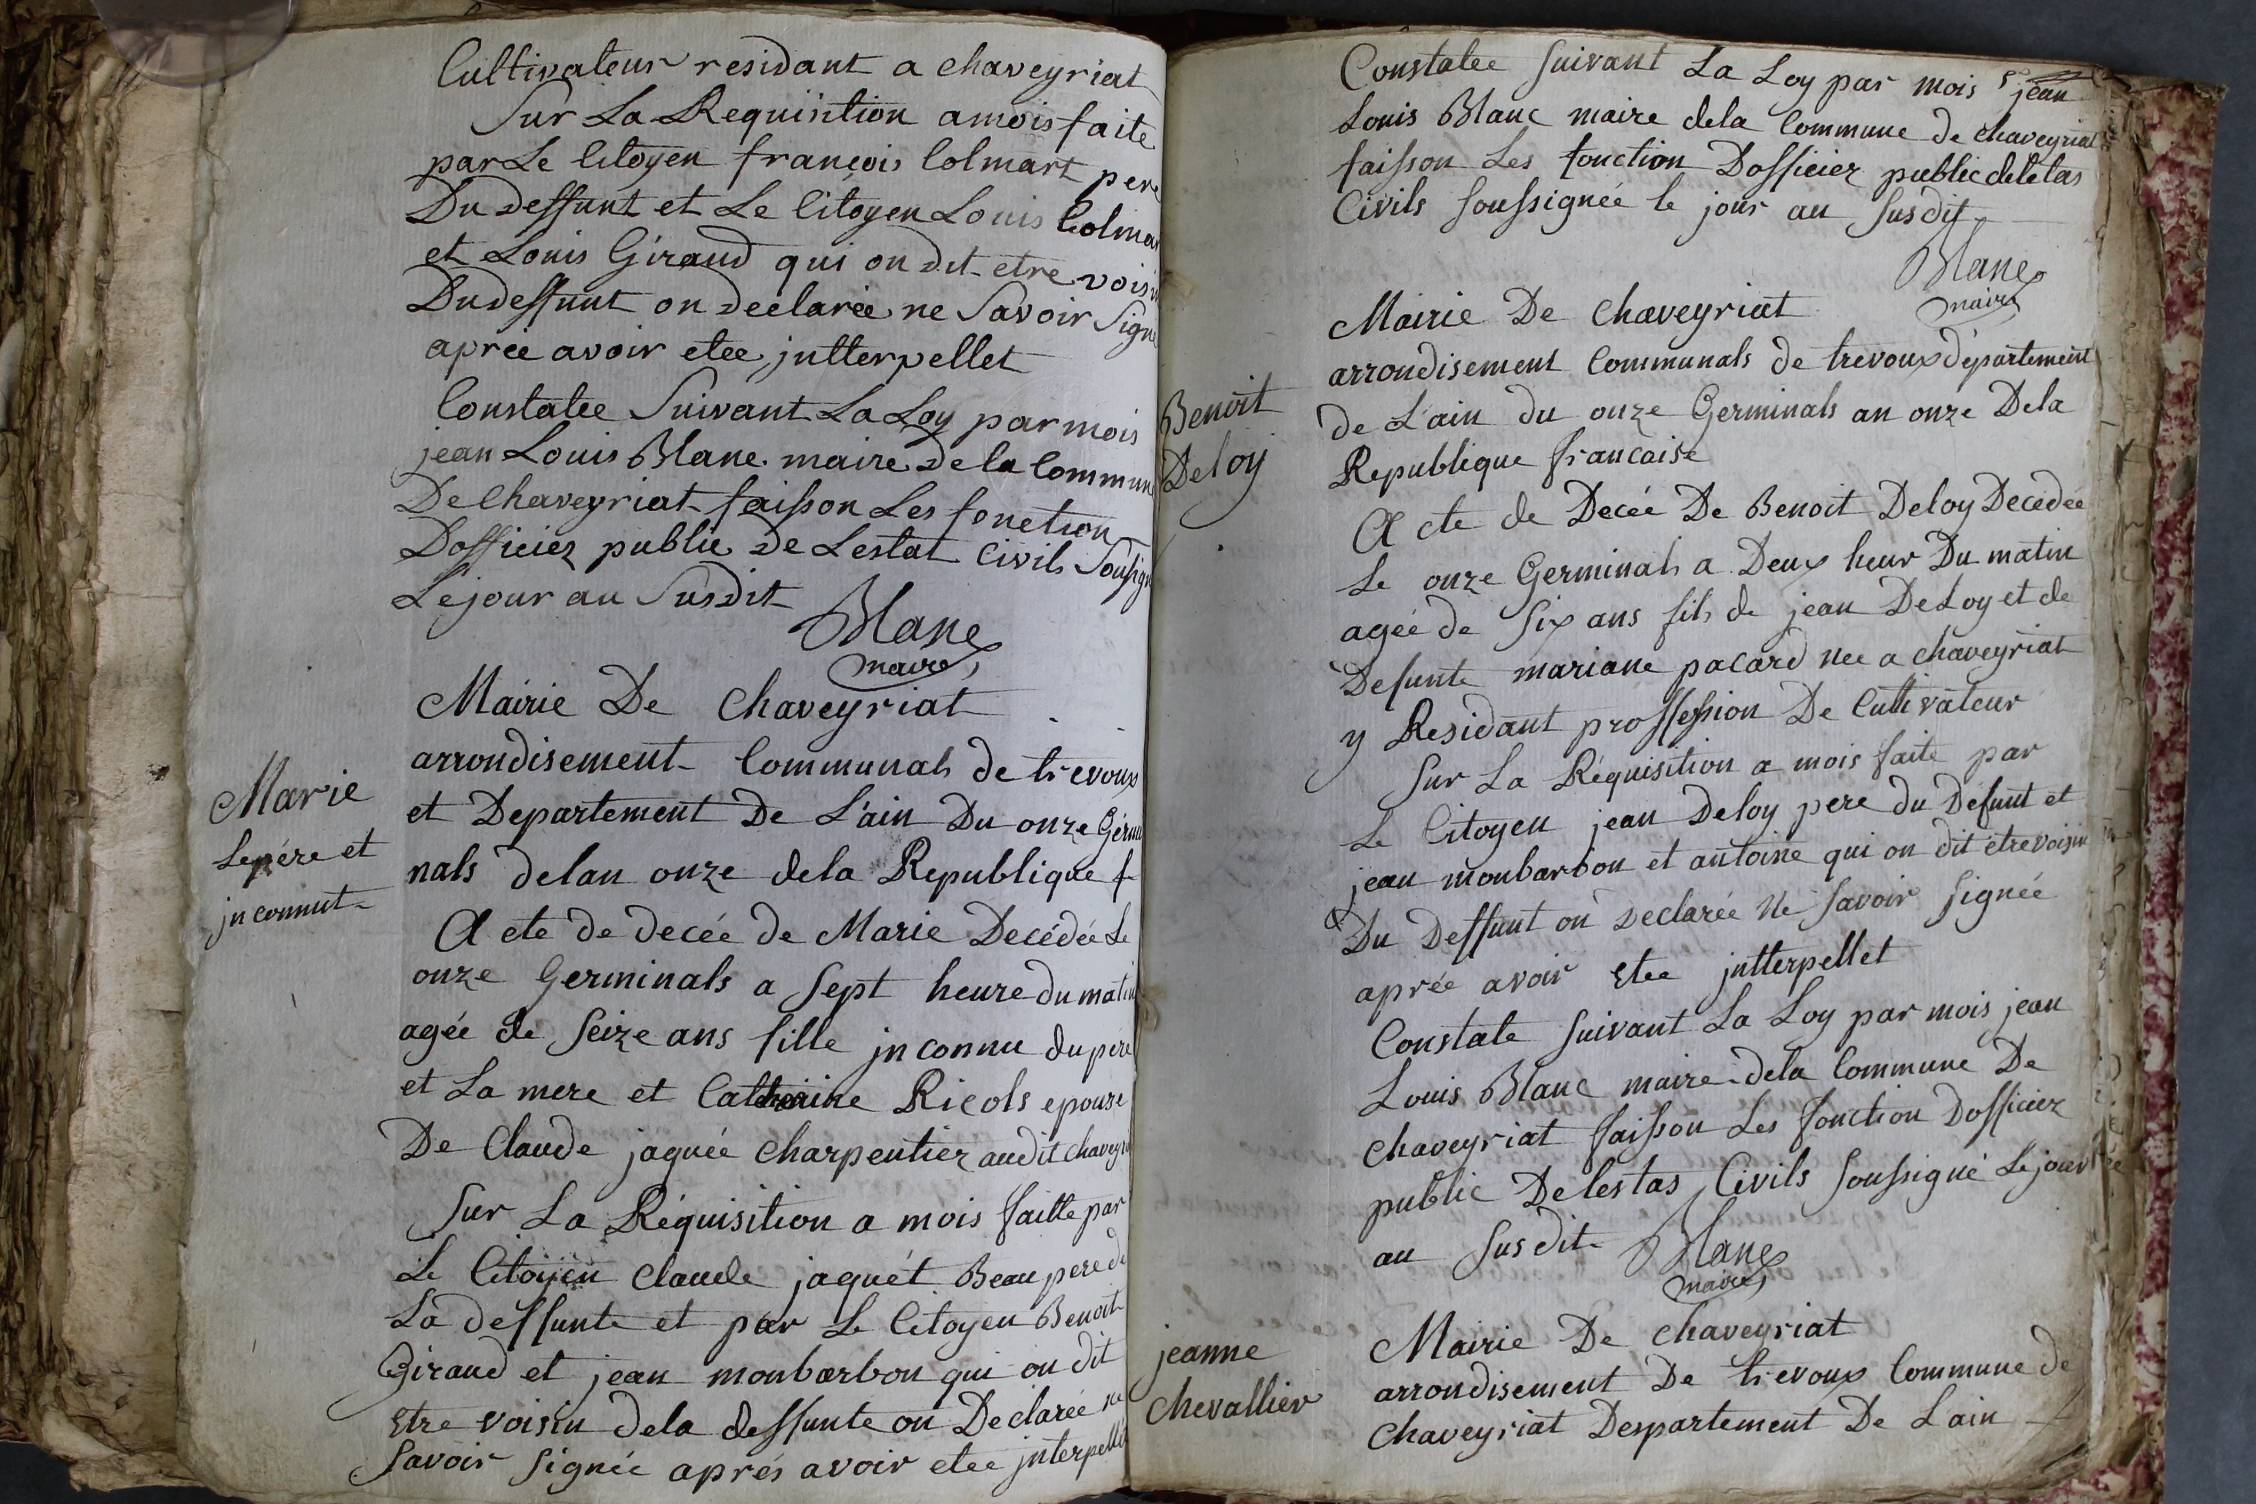 Cultivateur residant a chaveyriat
Sur La Requisition a mois faite
par Le Citoyen françois Colmart pere
Du deffunt et Le Citoyen Louis Colmar
et Louis Giraud qui on dit etre voisin
Du deffunt on declarée ne Savoir Signe
aprée avoir etee jntterpellet
Constatee Suivant La Loy par mois
jean Louis Blanc maire de la Commune
De Chaveyriat faisson Les fonction
Dofficiez public de Lestat Civils Soussigne
Le jour au Susdit
Blanc
maire
Mairie De Chaveyriat
Marie
Le pére et
jnconnut
arrondisement Communals de trevoux
et Departement De L'ain Du onze Germi
nals delan onze dela Republique f
Acte de decée de Marie Decédée Le
onze Germinals a Sept heure du matin
agée de Seize ans fille jnconnu du pére
et La mere et Catherine Ricols epouse
De Claude jaquée Charpentiez audit chaveyri
Sur La Réquisition a mois faitte par
Le Citoyen claude jaquét Beau pere de
La deffunte et par Le Citoyen Benoit
Giraud et jean monbarbon qui on dit
Etre voisin dela deffunte on Declarée ne
Savoir Signée aprés avoir etee jnterpellé
Constatee Suivant La Loy par mois jean
Louis Blanc maire dela Commune de chaveyriat
faisson Les fonction Dofficiez public delestas
Civils Soussignée le jour au Susdit
Blanc
maire
Mairie De Chaveyriat
Benoit
Deloy
arrondisement Communals de trevoux département
de L'ain du onze Germinals an onze Dela
Republique francaise
Acte de Decée De Benoit Deloy Decedée
Le onze Germinals a Deux heur Du matin
agée de Six ans fils de jean DeLoy et de
Defunte mariane pacard nee a chaveyriat
y Residant proffession De Cultivateur
Sur La Réquisition a mois faite par
Le Citoyen jean Deloy pere du Défunt et
jean monbarbon et antoine qui on dit etre voisin
Du Deffunt on Declarée Ne Savoir Signée
aprée avoir Etee jntterpellet
Constate Suivant La Loy par mois jean
Louis Blanc maire dela Commune De
chaveyriat faisson Les fonction Dofficiez
public De lestas Civils Soussigné Le jour
au Susdit
Blanc
maire
jeanne
chevallier
Mairie De chaveyriat
arrondisement De trevoux Commune de
Chaveyriat Despartement De L'ain